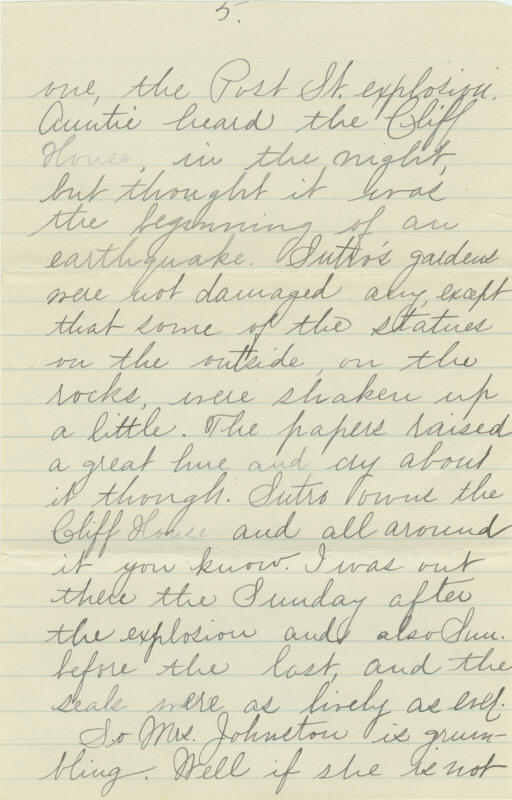 5.
one, the Post St. explosion.
Auntie heard the Cliff
House, in the night,
but thought it was
the beginning of an
earthquake. Sutro's gardens
were not damaged any, except
that some of the statues
on the outside, on the
rocks, were shaken up
a little. The papers raised
a great hue and cry about
it though. Sutro owns the
Cliff House and all around
it you know. I was out
there the Sunday after
the explosion and also Sun.
before the last, and the
seals were as lively as ever.
So Mrs. Johnston is grum-
bling. Well if she is not